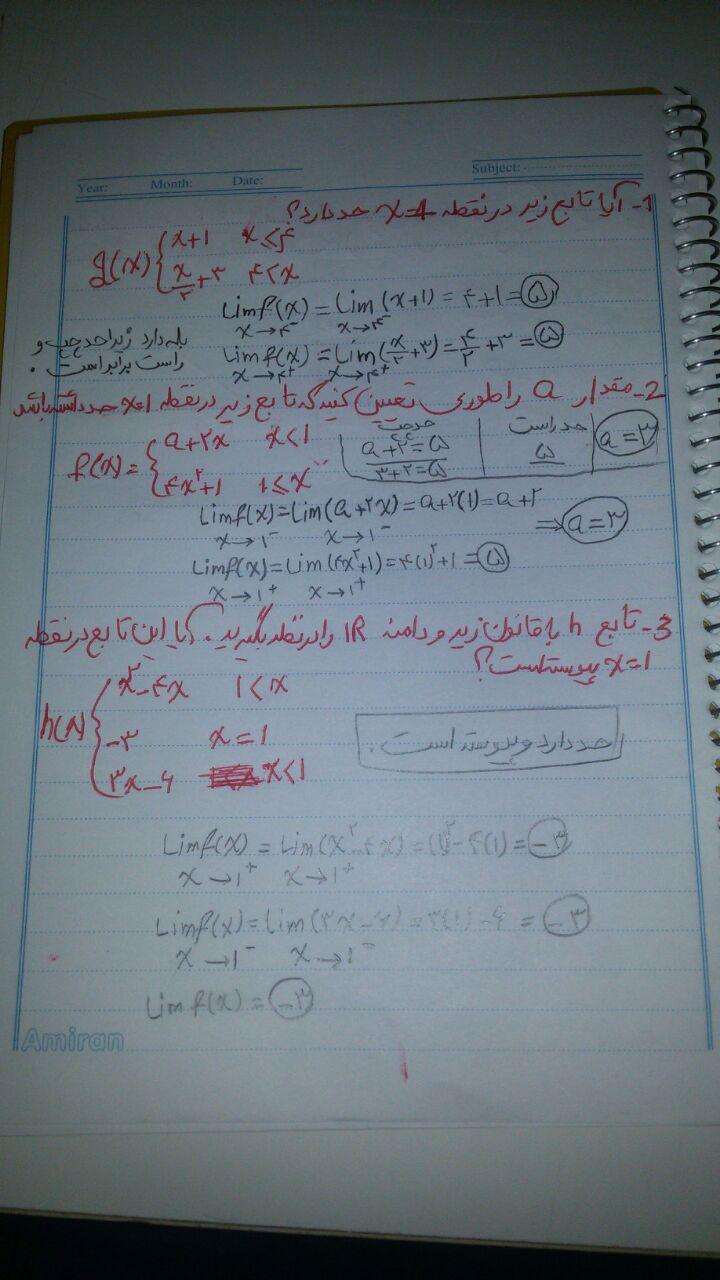 Year: Month: Date: Subject:
1- آیا تابع زیر در نقطه x=4 حد دارد؟
g(x) { x+1 x≤۴
x/۲+۳ ۴<x
Lim f(x) = Lim (x+1) = ۴+1 = ۵
x→۴⁻ x→۴⁻
Lim f(x) = Lim (x/۲+۳) = ۴/۲+۳ = ۵
x→۴⁺ x→۴⁺
بله دارد زیرا حد چپ و
راست برابر است.
2- مقدار a را طوری تعیین کنید که تابع زیر در نقطه x=1 حد داشته باشد
f(x) = { a+۲x x<1
۴x²+1 1≤x
حد چپ
a+۲=۵
۳+۲=۵
حد راست
۵
a=۳
Lim f(x) = Lim (a+۲x) = a+۲(1) = a+۲
x→1⁻ x→1⁻
⇒ a=۳
Lim f(x) = Lim (۴x²+1) = ۴(1)²+1 = ۵
x→1⁺ x→1⁺
3- تابع h با قانون زیر و دامنه IR را در نظر بگیرید. آیا این تابع در نقطه
x=1 پیوسته است؟
h(x) { x²-۴x 1<x
-۳ x=1
۳x-۶ x<1
حد دارد و پیوسته است.
Lim f(x) = Lim (x²-۴x) = (1)²-۴(1) = -۳
x→1⁺ x→1⁺
Lim f(x) = Lim (۳x-۶) = ۳(1)-۶ = -۳
x→1⁻ x→1⁻
Lim f(x) = -۳
Amiran